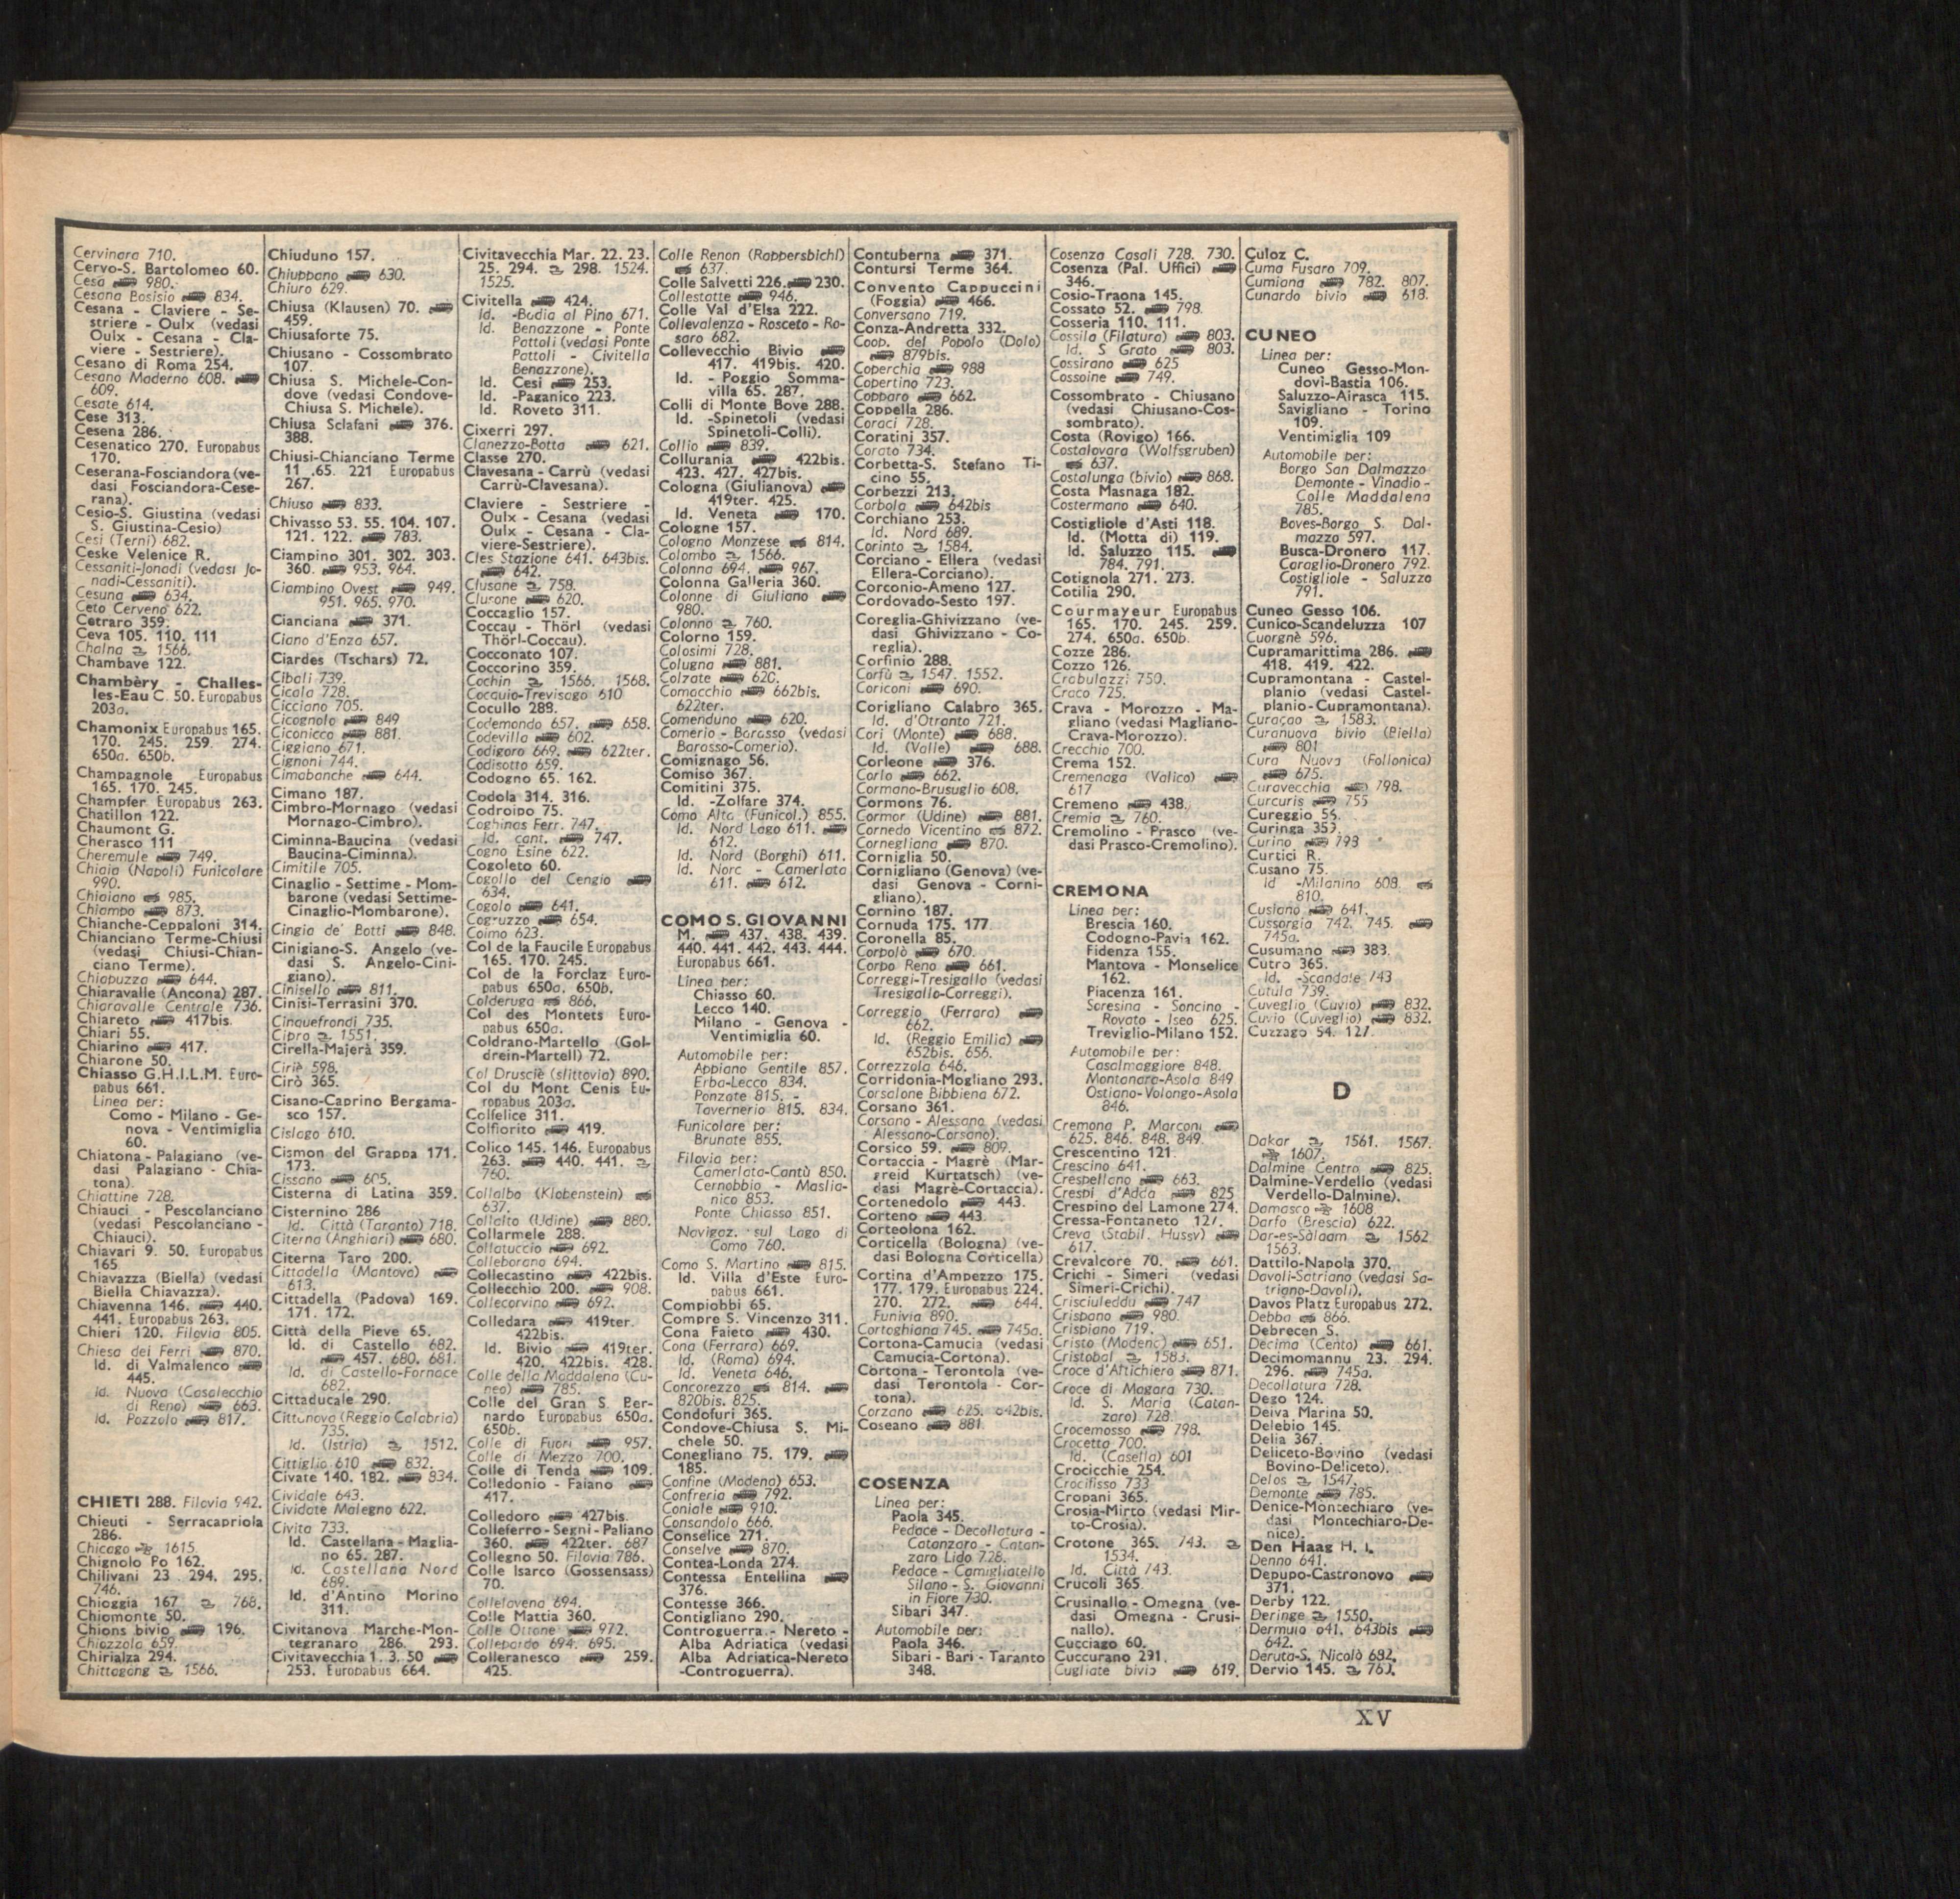 Cervinara 710.
Cervo-S. Bartolomeo 60.
Cesa 980.
Cesana Bosisio 834.
Cesana - Claviere - Se-
striere - Oulx (vedasi
Oulx - Cesana - Cla-
viere - Sestriere).
Cesano di Roma 254.
Cesano Maderno 608.
609.
Cesate 614.
Cese 313.
Cesena 286.
Cesenatico 270. Europabus
170.
Ceserana-Fosciandora (ve-
dasi Fosciandora-Cese-
rana).
Cesio-S. Giustina (vedasi
S. Giustina-Cesio)
Cesi (Terni) 682.
Ceske Velenice R.
Cessaniti-Jonadi (vedasi Jo-
nadi-Cessaniti).
Cesuna 634.
Ceto Cerveno 622.
Cetraro 359.
Ceva 105. 110. 111
Chalna 1566.
Chambave 122.
Chambèry - Challes-
les-Eau C. 50. Europabus
203a.
Chamonix Europabus 165.
170. 245. 259. 274.
650a. 650b.
Champagnole Europabus
165. 170. 245.
Champfer Europabus 263.
Chatillon 122.
Chaumont G.
Cherasco 111
Cheremule 749.
Chiaia (Napoli) Funicolare
990.
Chiaiano 985.
Chiampo 873.
Chianche-Ceppaloni 314.
Chianciano Terme-Chiusi
(vedasi Chiusi-Chian-
ciano Terme).
Chiapuzza 644.
Chiaravalle (Ancona) 287.
Chiaravalle Centrale 736.
Chiareto 417bis.
Chiari 55.
Chiarino 417.
Chiarone 50.
Chiasso G.H.I.L.M. Euro-
pabus 661.
Linea per:
Como - Milano - Ge-
nova - Ventimiglia
60.
Chiatona - Palagiano (ve-
dasi Palagiano - Chia-
tona).
Chiattine 728.
Chiauci - Pescolanciano
(vedasi Pescolanciano -
Chiauci).
Chiavari 9. 50. Europabus
165
Chiavazza (Biella) (vedasi
Biella Chiavazza).
Chiavenna 146. 440.
441. Europabus 263.
Chieri 120. Filovia 805.
Chiesa dei Ferri 870.
Id. di Valmalenco
445.
Id. Nuova (Casalecchio
di Reno) 663.
Id. Pozzolo 817.
CHIETI 288. Filovia 942.
Chieuti - Serracapriola
286.
Chicago 1615.
Chignolo Po 162.
Chilivani 23 294. 295.
746.
Chioggia 167 768.
Chiomonte 50.
Chions bivio 196.
Chiozzola 659.
Chirialza 294.
Chittagong 1566.
Chiuduno 157.
Chiuppano 630.
Chiuro 629.
Chiusa (Klausen) 70.
459.
Chiusaforte 75.
Chiusano - Cossombrato
107.
Chiusa S. Michele-Con-
dove (vedasi Condove-
Chiusa S. Michele).
Chiusa Sclafani 376.
388.
Chiusi-Chianciano Terme
11 .65. 221 Europabus
267.
Chiuso 833.
Chivasso 53. 55. 104. 107.
121. 122. 783.
Ciampino 301. 302. 303.
360. 953. 964.
Ciampino Ovest 949.
951. 965. 970.
Cianciana 371.
Ciano d'Enza 657.
Ciardes (Tschars) 72.
Cibali 739.
Cicala 728.
Cicciano 705.
Cicognolo 849
Ciconicco 881.
Ciggiano 671.
Cignoni 744.
Cimabanche 644.
Cimano 187.
Cimbro-Mornago (vedasi
Mornago-Cimbro).
Ciminna-Baucina (vedasi
Baucina-Ciminna).
Cimitile 705.
Cinaglio - Settime - Mom-
barone (vedasi Settime-
Cinaglio-Mombarone).
Cingia de' Botti 848.
Cinigiano-S. Angelo (ve-
dasi S. Angelo-Cini-
giano).
Cinisello 811.
Cinisi-Terrasini 370.
Cinquefrondi 735.
Cipro 1551.
Cirella-Majerà 359.
Ciriè 598.
Cirò 365.
Cisano-Caprino Bergama-
sco 157.
Cislago 610.
Cismon del Grappa 171.
173.
Cissano 605.
Cisterna di Latina 359.
Cisternino 286
Id. Città (Taranto) 718.
Citerna (Anghiari) 680.
Citerna Taro 200.
Cittadella (Mantova)
613.
Cittadella (Padova) 169.
171. 172.
Città della Pieve 65.
Id. di Castello 682.
457. 680. 681.
Id. di Castello-Fornace
682.
Cittaducale 290.
Cittanova (Reggio Calabria)
735.
Id. (Istria) 1512.
Cittiglio 610 832.
Civate 140. 182. 834.
Cividale 643.
Cividate Malegno 622.
Civita 733.
Id. Castellana - Maglia-
no 65. 287.
Id. Castellana Nord
689.
Id. d'Antino Morino
311.
Civitanova Marche-Mon-
tegranaro 286. 293.
Civitavecchia 1. 3. 50
253. Europabus 664.
Civitavecchia Mar. 22. 23.
25. 294. 298. 1524.
1525.
Civitella 424.
Id. -Badia al Pino 671.
Id. Benazzone - Ponte
Pattoli (vedasi Ponte
Pattoli - Civitella
Benazzone).
Id. Cesi 253.
Id. -Paganico 223.
Id. Roveto 311.
Cixerri 297.
Clanezzo-Botta 621.
Classe 270.
Clavesana - Carrù (vedasi
Carrù-Clavesana).
Claviere - Sestriere -
Oulx - Cesana (vedasi
Oulx - Cesana - Cla-
viere-Sestriere).
Cles Stazione 641. 643bis.
642.
Clusane 758.
Clurone 620.
Coccaglio 157.
Coccau - Thörl (vedasi
Thörl-Coccau).
Cocconato 107.
Coccorino 359.
Cochin 1566. 1568.
Cocquio-Trevisago 610
Cocullo 288.
Codemondo 657. 658.
Codevilla 602.
Codigoro 669. 622ter.
Codisotto 659.
Codogno 65. 162.
Codola 314. 316.
Codroipo 75.
Coghinas Ferr. 747.
Id. cant. 747.
Cogno Esine 622.
Cogoleto 60.
Cogollo del Cengio
634.
Cogolo 641.
Cogruzzo 654.
Coimo 623.
Col de la Faucile Europabus
165. 170. 245.
Col de la Forclaz Euro-
pabus 650a. 650b.
Colderuga 866.
Col des Montets Euro-
pabus 650a.
Coldrano-Martello (Gol-
drein-Martell) 72.
Col Drusciè (slittovia) 890.
Col du Mont Cenis Eu-
ropabus 203a.
Colfelice 311.
Colfiorito 419.
Colico 145. 146. Europabus
263. 440. 441.
760.
Collalbo (Klobenstein)
637.
Collalto (Udine) 880.
Collarmele 288.
Collatuccio 692.
Colleborano 694.
Collecastino 422bis.
Collecchio 200. 908.
Collecorvino 692.
Colledara 419ter.
422bis.
Id. Bivio 419ter.
420. 422bis. 428.
Colle della Maddalena (Cu-
neo) 785.
Colle del Gran S. Ber-
nardo Europabus 650a.
650b.
Colle di Fuori 957.
Colle di Mezzo 700.
Colle di Tenda 109.
Colledonio - Faiano
417.
Colledoro 427bis.
Colleferro-Segni-Paliano
360. 422ter. 687
Collegno 50. Filovia 786.
Colle Isarco (Gossensass)
70.
Collelavena 694.
Colle Mattia 360.
Colle Ottone 972.
Collepardo 694. 695.
Colleranesco 259.
425.
Colle Renon (Rappersbichl)
637.
Colle Salvetti 226. 230.
Collestatte 946.
Colle Val d'Elsa 222.
Collevalenza - Rosceto - Ro-
saro 682.
Collevecchio Bivio
417. 419bis. 420.
Id. - Poggio Somma-
villa 65. 287.
Colli di Monte Bove 288.
Id. -Spinetoli (vedasi
Spinetoli-Colli).
Collio 839.
Collurania 422bis.
423. 427. 427bis.
Cologna (Giulianova)
419ter. 425.
Id. Veneta 170.
Cologne 157.
Cologno Monzese 814.
Colombo 1566.
Colonna 694. 967.
Colonna Galleria 360.
Colonne di Giuliano
980.
Colonno 760.
Colorno 159.
Colosimi 728.
Colugna 881.
Colzate 620.
Comacchio 662bis.
622ter.
Comenduno 620.
Comerio - Barasso (vedasi
Barasso-Comerio).
Comignago 56.
Comiso 367.
Comitini 375.
Id. -Zolfare 374.
Como Alta (Funicol.) 855.
Id. Nord Lago 611.
612.
Id. Nord (Borghi) 611.
Id. Nord - Camerlata
611. 612.
COMO S. GIOVANNI
M. 437. 438. 439.
440. 441. 442. 443. 444.
Europabus 661.
Linea per:
Chiasso 60.
Lecco 140.
Milano - Genova -
Ventimiglia 60.
Automobile per:
Appiano Gentile 857.
Erba-Lecco 834.
Ponzate 815. -
Tavernerio 815. 834.
Funicolare per:
Brunate 855.
Filovia per:
Camerlata-Cantù 850.
Cernobbio - Maslia-
nico 853.
Ponte Chiasso 851.
Navigaz. sul Lago di
Como 760.
Como S. Martino 815.
Id. Villa d'Este Euro-
pabus 661.
Compiobbi 65.
Compre S. Vincenzo 311.
Cona Faieto 430.
Cona (Ferrara) 669.
Id. (Roma) 694.
Id. Veneta 646.
Concorezzo 814.
820bis. 825.
Condofuri 365.
Condove-Chiusa S. Mi-
chele 50.
Conegliano 75. 179.
185.
Confine (Modena) 653.
Confreria 792.
Coniale 910.
Consandolo 666.
Conselice 271.
Conselve 870.
Contea-Londa 274.
Contessa Entellina
376.
Contesse 366.
Contigliano 290.
Controguerra - Nereto -
Alba Adriatica (vedasi
Alba Adriatica-Nereto
-Controguerra).
Contuberna 371.
Contursi Terme 364.
Convento Cappuccini
(Foggia) 466.
Conversano 719.
Conza-Andretta 332.
Coop. del Popolo (Dolo)
879bis.
Coperchia 988
Copertino 723.
Copparo 662.
Coppella 286.
Coraci 728.
Coratini 357.
Corato 734.
Corbetta-S. Stefano Ti-
cino 55.
Corbezzi 213.
Corbola 642bis
Corchiano 253.
Id. Nord 689.
Corinto 1584.
Corciano - Ellera (vedasi
Ellera-Corciano).
Corconio-Ameno 127.
Cordovado-Sesto 197.
Coreglia-Ghivizzano (ve-
dasi Ghivizzano - Co-
reglia).
Corfinio 288.
Corfù 1547. 1552.
Coriconi 690.
Corigliano Calabro 365.
Id. d'Otranto 721.
Cori (Monte) 688.
Id. (Valle) 688.
Corleone 376.
Corlo 662.
Cormano-Brusuglio 608.
Cormons 76.
Cormor (Udine) 881.
Cornedo Vicentino 872.
Cornegliana 870.
Corniglia 50.
Cornigliano (Genova) (ve-
dasi Genova - Corni-
gliano).
Cornino 187.
Cornuda 175. 177
Coronella 85.
Corpolò 670.
Corpo Reno 661.
Correggi-Tresigallo (vedasi
Tresigallo-Correggi).
Correggio (Ferrara)
662.
Id. (Reggio Emilia)
652bis. 656.
Correzzola 646.
Corridonia-Mogliano 293.
Corsalone Bibbiena 672.
Corsano 361.
Corsano - Alessano (vedasi
Alessano-Corsano).
Corsico 59. 809.
Cortaccia - Magrè (Mar-
greid Kurtatsch) (ve-
dasi Magrè-Cortaccia).
Cortenedolo 443.
Corteno 443.
Corteolona 162.
Corticella (Bologna) (ve-
dasi Bologna Corticella)
Cortina d'Ampezzo 175.
177. 179. Europabus 224.
270. 272. 644.
Funivia 890.
Cortoghiana 745. 745a.
Cortona-Camucia (vedasi
Camucia-Cortona).
Cortona - Terontola (ve-
dasi Terontola - Cor-
tona).
Corzano 625. 642bis.
Coseano 881.
COSENZA
Linea per:
Paola 345.
Pedace - Decollatura -
Catanzaro - Catan-
zaro Lido 728.
Pedace - Camigliatello
Silano - S. Giovanni
in Fiore 730.
Sibari 347.
Automobile per:
Paola 346.
Sibari - Bari - Taranto
348.
Cosenza Casali 728. 730.
Cosenza (Pal. Uffici)
346.
Cosio-Traona 145.
Cossato 52. 798.
Cosseria 110. 111.
Cossila (Filatura) 803.
Id. S Grato 803.
Cossirano 625
Cossoine 749.
Cossombrato - Chiusano
(vedasi Chiusano-Cos-
sombrato).
Costa (Rovigo) 166.
Costalovara (Wolfsgruben)
637.
Costalunga (bivio) 868.
Costa Masnaga 182.
Costermano 640.
Costigliole d'Asti 118.
Id. (Motta di) 119.
Id. Saluzzo 115.
784. 791.
Cotignola 271. 273.
Cotilia 290.
Courmayeur Europabus
165. 170. 245. 259.
274. 650a. 650b.
Cozze 286.
Cozzo 126.
Crabulazzi 750.
Craco 725.
Crava - Morozzo - Ma-
gliano (vedasi Magliano-
Crava-Morozzo).
Crecchio 700.
Crema 152.
Cremenaga (Valico)
617
Cremeno 438.
Cremia 760.
Cremolino - Prasco (ve-
dasi Prasco-Cremolino).
CREMONA
Linea per:
Brescia 160.
Codogno-Pavia 162.
Fidenza 155.
Mantova - Monselice
162.
Piacenza 161.
Soresina - Soncino -
Rovato - Iseo 625.
Treviglio-Milano 152.
Automobile per:
Casalmaggiore 848.
Montanara-Asola 849
Ostiano-Volongo-Asola
846.
Cremona P. Marconi
625. 846. 848. 849.
Crescentino 121
Crescino 641.
Crespellano 663.
Crespi d'Adda 825
Crespino del Lamone 274.
Cressa-Fontaneto 127.
Creva (Stabil. Hussy)
617.
Crevalcore 70. 661.
Crichi - Simeri (vedasi
Simeri-Crichi).
Crisciuleddu 747
Crispano 980.
Crispiano 719.
Cristo (Modena) 651.
Cristobal 1583.
Croce d'Altichiero 871.
Croce di Magara 730.
Id. S. Maria (Catan-
zaro) 728.
Crocemosso 798.
Crocetta 700.
Id. (Casella) 601
Crocicchie 254.
Crocifisso 733
Cropani 365.
Crosia-Mirto (vedasi Mir-
to-Crosia).
Crotone 365. 743.
1534.
Id. Città 743.
Crucoli 365.
Crusinallo - Omegna (ve-
dasi Omegna - Crusi-
nallo).
Cucciago 60.
Cuccurano 291.
Cugliate bivio 619.
Culoz C.
Cuma Fusaro 709.
Cumiana 782. 807.
Cunardo bivio 618.
CUNEO
Linea per:
Cuneo Gesso-Mon-
dovì-Bastia 106.
Saluzzo-Airasca 115.
Savigliano - Torino
109.
Ventimiglia 109
Automobile per:
Borgo San Dalmazzo
Demonte - Vinadio -
Colle Maddalena
785.
Boves-Borgo S. Dal-
mazzo 597.
Busca-Dronero 117.
Caraglio-Dronero 792.
Costigliole - Saluzzo
791.
Cuneo Gesso 106.
Cunico-Scandeluzza 107
Cuorgnè 596.
Cupramarittima 286.
418. 419. 422.
Cupramontana - Castel-
planio (vedasi Castel-
planio-Cupramontana).
Curaçao 1583.
Curanuova bivio (Biella)
801
Cura Nuova (Follonica)
675.
Curavecchia 798.
Curcuris 755
Cureggio 56.
Curinga 359.
Curino 798
Curtici R.
Cusano 75.
Id -Milanino 608.
810.
Cusiano 641.
Cussorgia 742. 745.
745a.
Cusumano 383.
Cutro 365.
Id. -Scandale 743
Cutula 739.
Cuveglio (Cuvio) 832.
Cuvio (Cuveglio) 832.
Cuzzago 54. 127.
D
Dakar 1561. 1567.
1607.
Dalmine Centro 825.
Dalmine-Verdello (vedasi
Verdello-Dalmine).
Damasco 1608
Darfo (Brescia) 622.
Dar-es-Sàlaam 1562
1563.
Dattilo-Napola 370.
Davoli-Satriano (vedasi Sa-
triano-Davoli).
Davos Platz Europabus 272.
Debba 866.
Debrecen S.
Decima (Cento) 661.
Decimomannu 23. 294.
296. 745a.
Decollatura 728.
Dego 124.
Deiva Marina 50.
Delebio 145.
Delia 367.
Deliceto-Bovino (vedasi
Bovino-Deliceto).
Delos 1547.
Demonte 785.
Denice-Montechiaro (ve-
dasi Montechiaro-De-
nice).
Den Haag H. I.
Denno 641.
Depupo-Castronovo
371.
Derby 122.
Deringe 1550.
Dermulo 641. 643bis
642.
Deruta-S. Nicolò 682.
Dervio 145. 760.
XV